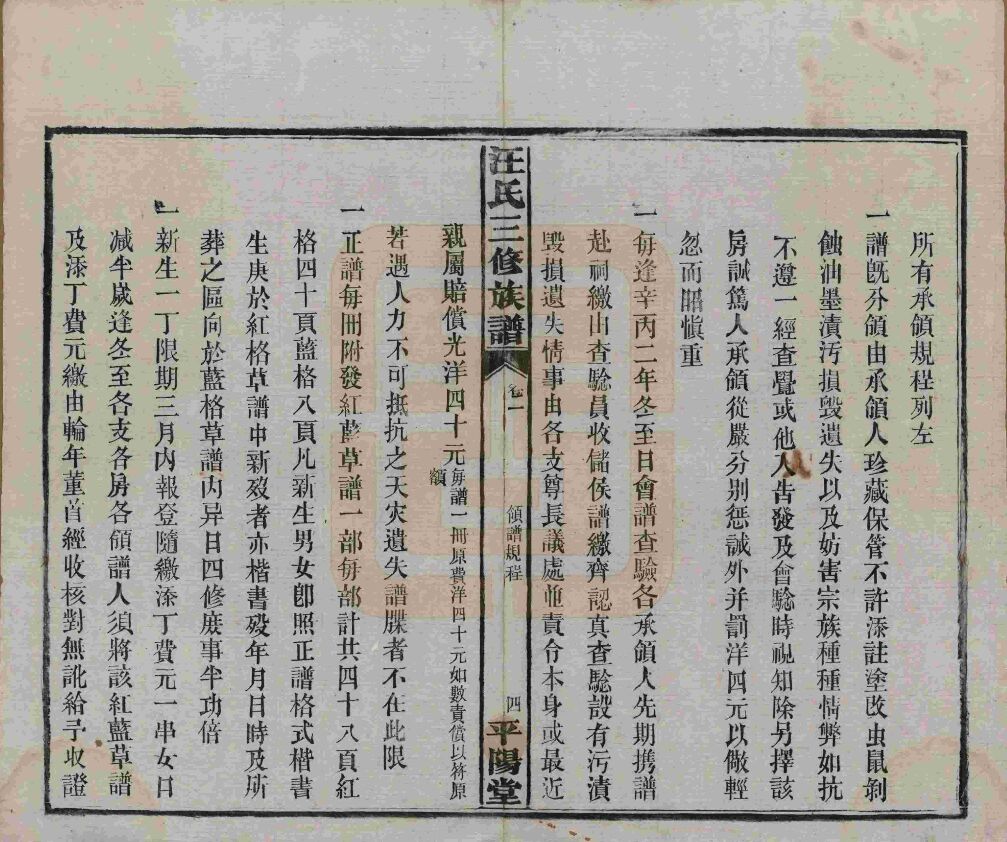 所有承領規程列左
一譜旣分領由承領人珍藏保管不許添註塗改虫鼠剝
蝕油墨漬汚損毁遺失以及妨害宗族種種情弊如抗
不遵一經查覺或他人告發及會驗時視知除另擇該
房誠篤人承領從嚴分別惩誡外并罰洋四元以儆輕
忽而昭愼重
一每逢辛丙二年冬至日會譜查驗各承領人先期携譜
赴祠繳由查驗員收儲俟譜繳齊認真查驗設有污漬
毁損遺失情事由各支尊長議處並責令本身或最近
汪氏三修族譜
卷一
領譜規程
四
平陽堂
親屬賠償光洋四十元每譜一冊原費洋四十元如數責償以符原
額
若遇人力不可抵抗之天灾遺失譜牒者不在此限
一正譜每冊附發紅藍草譜一部每部計共四十八頁紅
格四十頁藍格八頁凡新生男女卽照正譜格式楷書
生庚於紅格草譜中新歿者亦楷書殁年月日時及所
葬之區向於藍格草譜内异日四修庻事半功倍
一新生一丁限期三月內報登隨繳添丁費元一串女口
減半歲逢冬至各支各房各領譜人須將該紅藍草譜
及添丁費元繳由輪年董首經收核對無訛給予收證